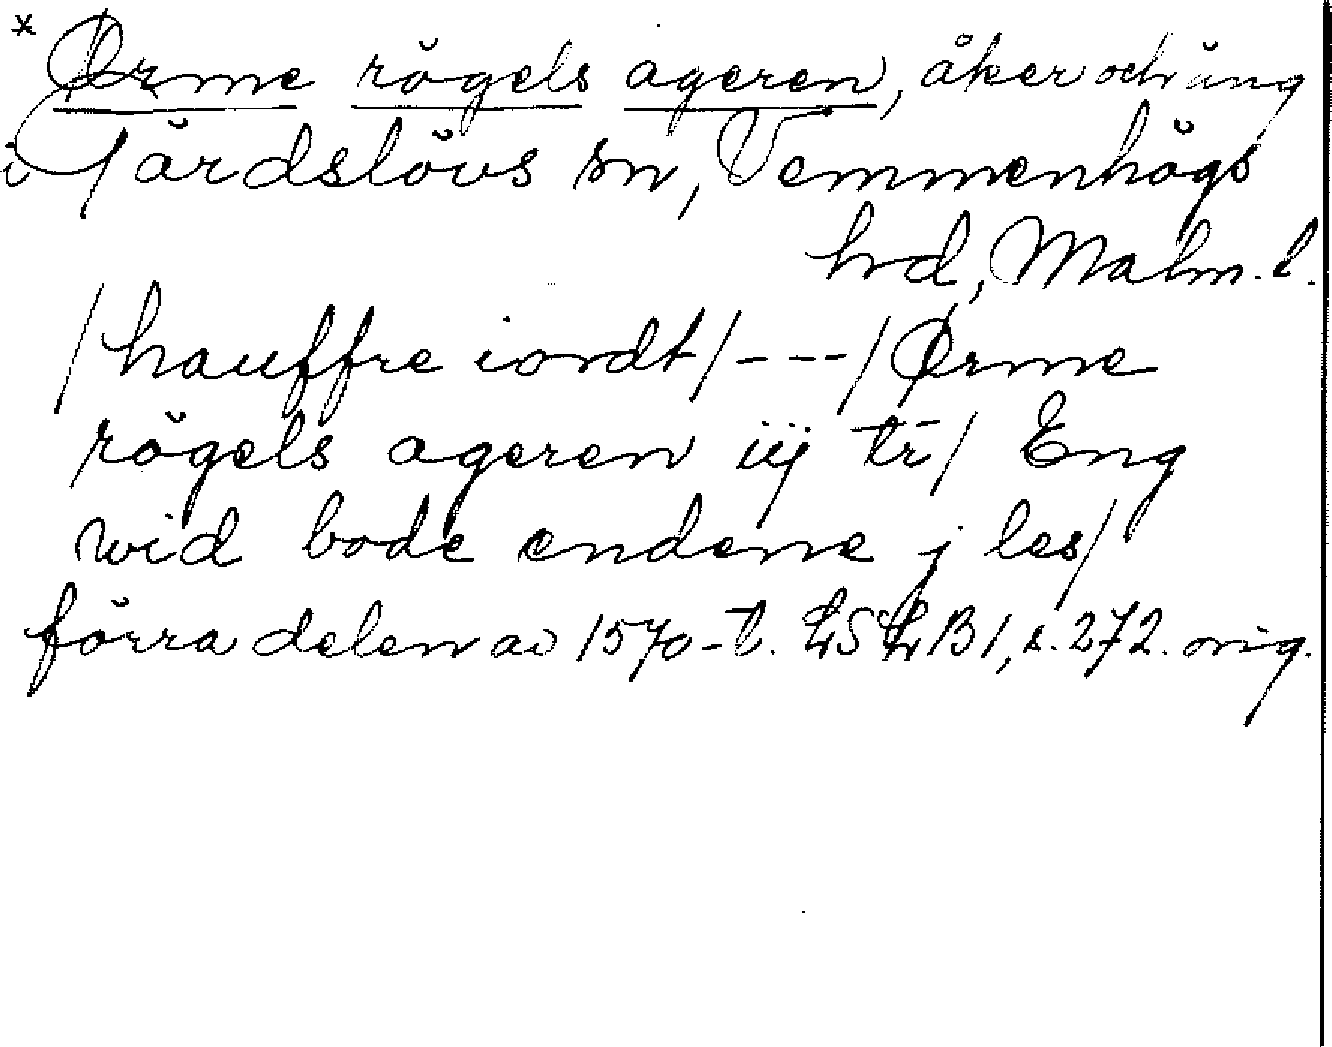 * Ørme rögels ageren, åker och äng
i Gärdslövs sn, Vemmenhögs
hd, Malm. l.
/hauffre iordt/---/Ørme
rögels ageren iij tr̄/ Eng
wid bode endene j les/
förra delen av 1570-t. LSLB1, s. 272. orig.